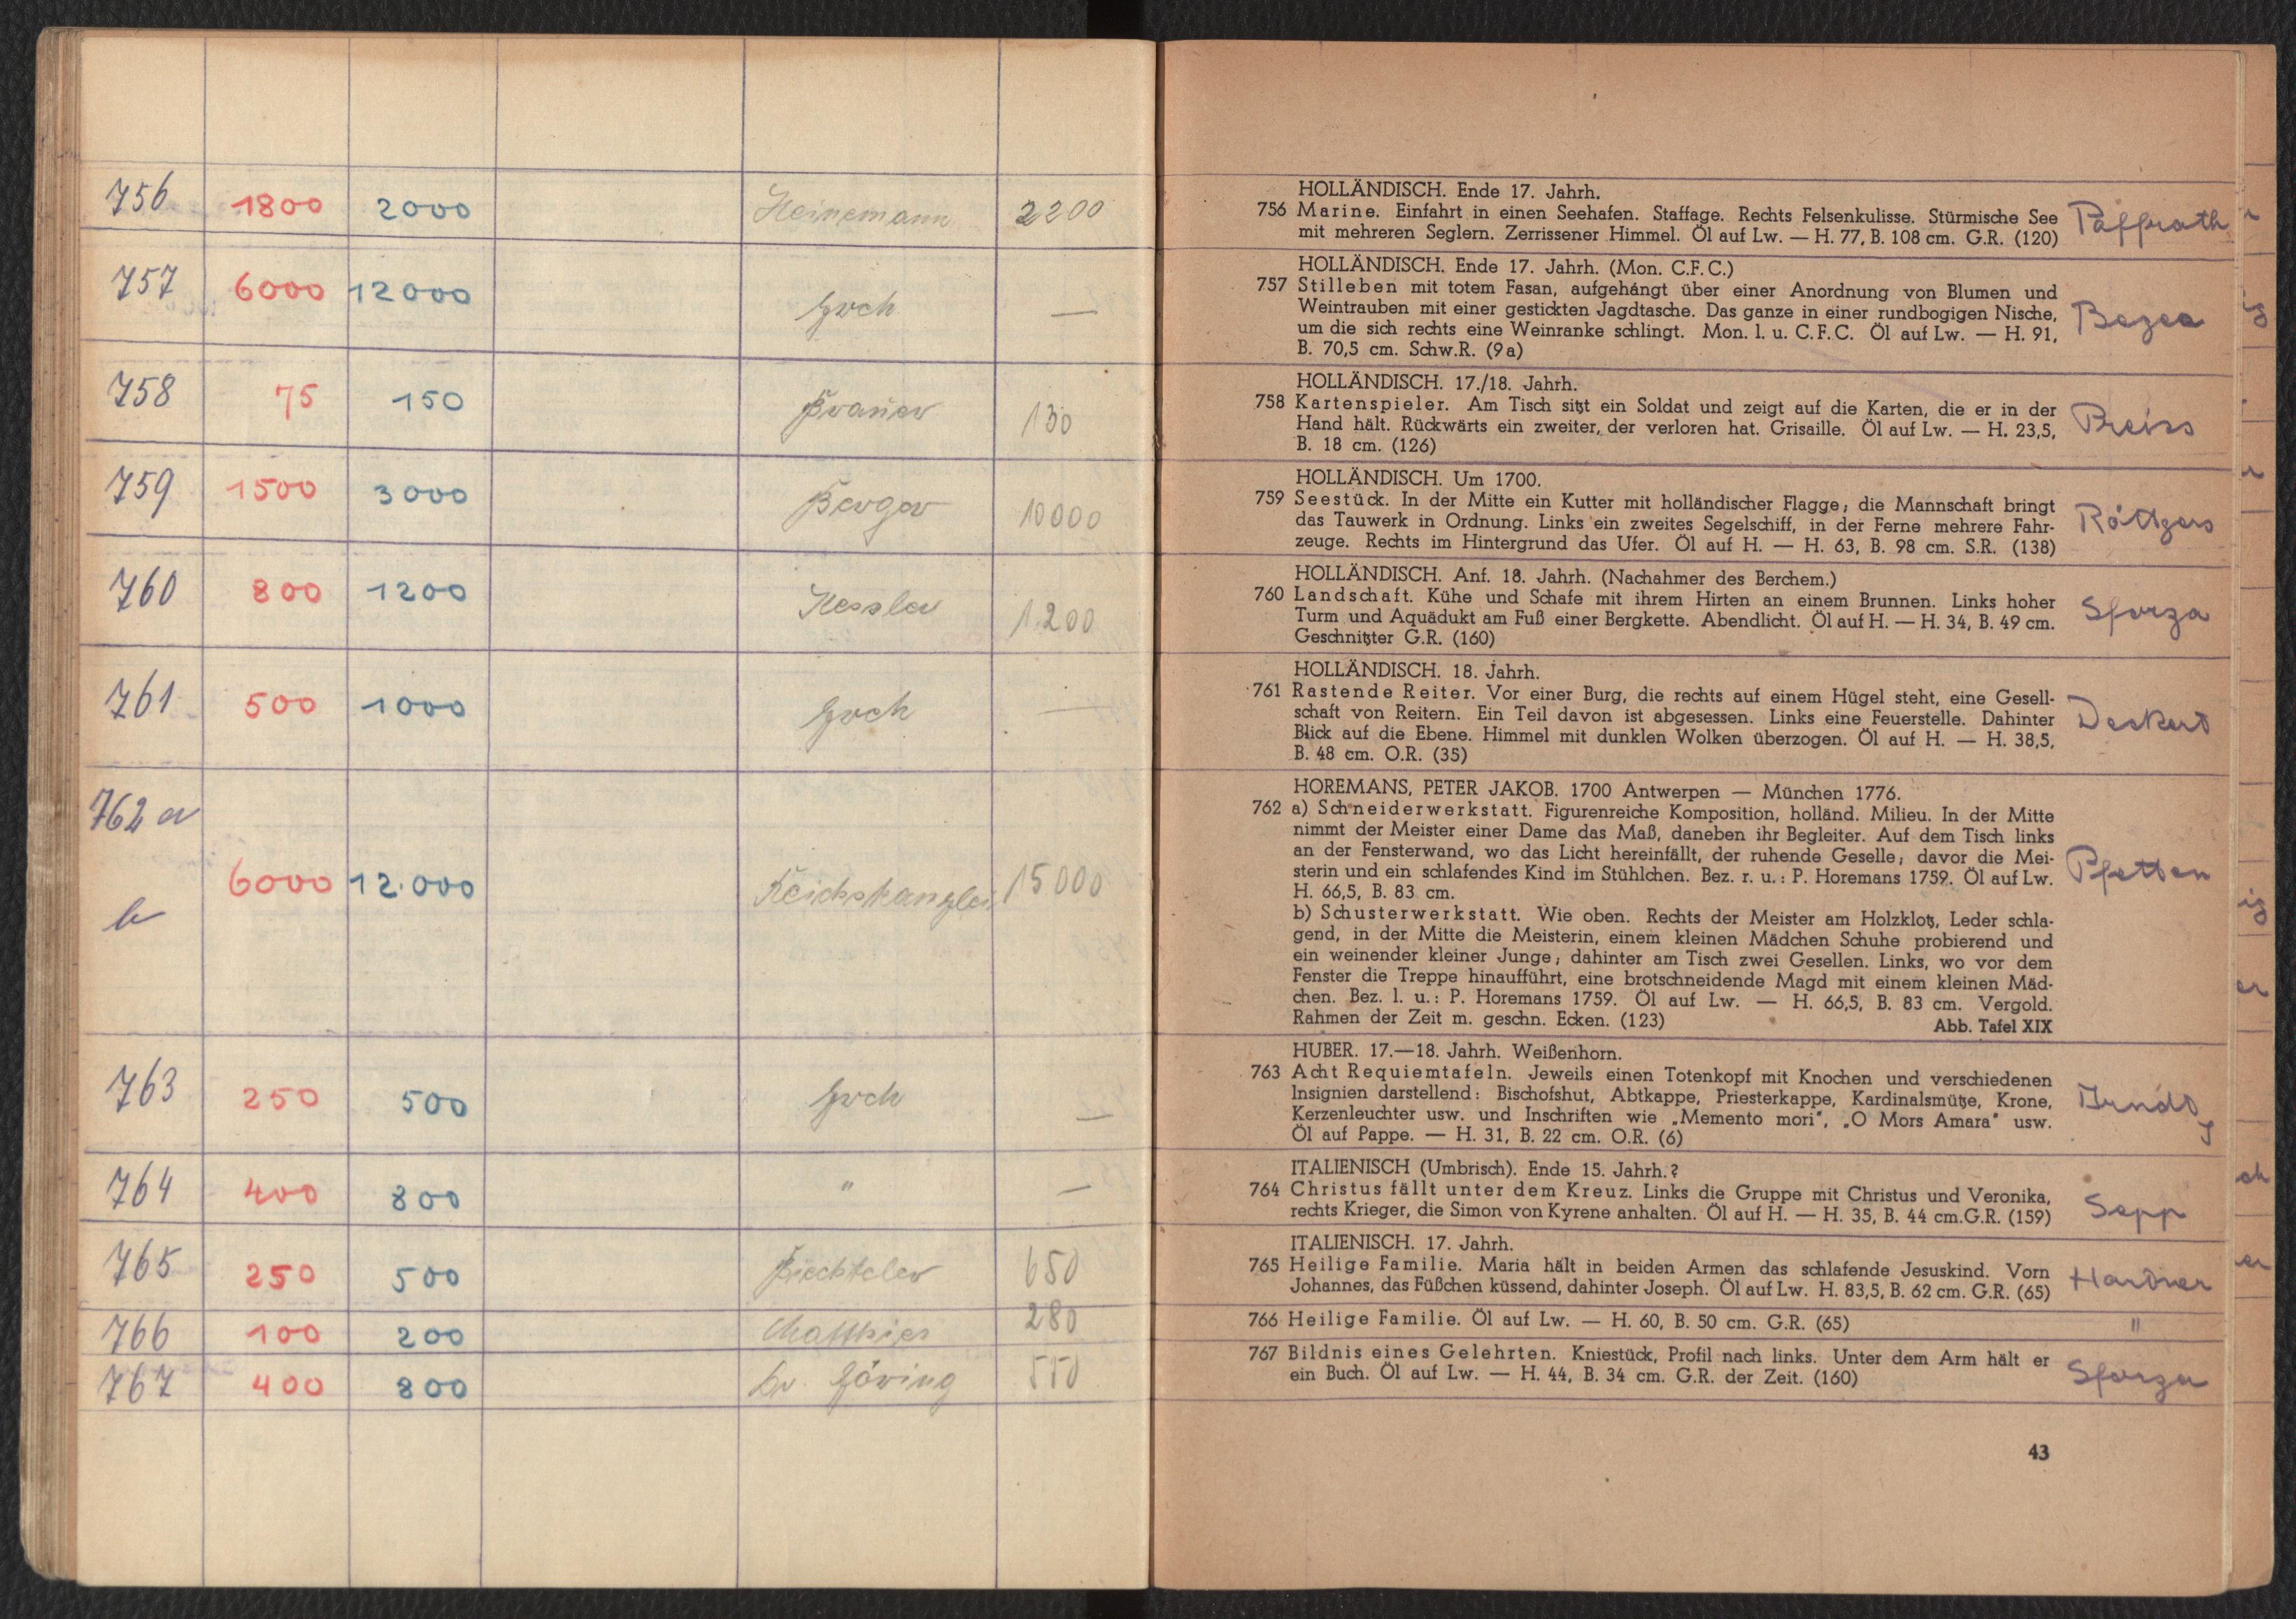 756 1800 2000 Heinemann 2200
757 6000 12000 —
758 75 150 130
759 1500 3000 Berger 10000
760 800 1200 Kessler 1200
761 500 1000 —
762 a
6000 12.000 Reichskanzlei 15000
b
763 250 500 —
764 400 800 " —
765 250 500 Biechteler 650
766 100 200 Matthies 280
767 400 800 Dr. Göring 550
HOLLÄNDISCH. Ende 17. Jahrh.
756 Marine. Einfahrt in einen Seehafen. Staffage. Rechts Felsenkulisse. Stürmische See Paffrath
mit mehreren Seglern. Zerrissener Himmel. Öl auf Lw. — H. 77, B. 108 cm. G.R. (120)
HOLLÄNDISCH. Ende 17. Jahrh. (Mon. C.F.C.)
757 Stilleben mit totem Fasan, aufgehängt über einer Anordnung von Blumen und
Weintrauben mit einer gestickten Jagdtasche. Das ganze in einer rundbogigen Nische,
um die sich rechts eine Weinranke schlingt. Mon. l. u. C.F.C. Öl auf Lw. — H. 91,
B. 70,5 cm. Schw.R. (9a)
HOLLÄNDISCH. 17./18. Jahrh.
758 Kartenspieler. Am Tisch sitzt ein Soldat und zeigt auf die Karten, die er in der
Hand hält. Rückwärts ein zweiter, der verloren hat. Grisaille. Öl auf Lw. — H. 23,5, Preiss
B. 18 cm. (126)
HOLLÄNDISCH. Um 1700.
759 Seestück. In der Mitte ein Kutter mit holländischer Flagge; die Mannschaft bringt
das Tauwerk in Ordnung. Links ein zweites Segelschiff, in der Ferne mehrere Fahr- Röttgers
zeuge. Rechts im Hintergrund das Ufer. Öl auf H. — H. 63, B. 98 cm. S.R. (138)
HOLLÄNDISCH. Anf. 18. Jahrh. (Nachahmer des Berchem.)
760 Landschaft. Kühe und Schafe mit ihrem Hirten an einem Brunnen. Links hoher Sforza
Turm und Aquädukt am Fuß einer Bergkette. Abendlicht. Öl auf H. — H. 34, B. 49 cm.
Geschnitzter G.R. (160)
HOLLÄNDISCH. 18. Jahrh.
761 Rastende Reiter. Vor einer Burg, die rechts auf einem Hügel steht, eine Gesell-
schaft von Reitern. Ein Teil davon ist abgesessen. Links eine Feuerstelle. Dahinter Deckert
Blick auf die Ebene. Himmel mit dunklen Wolken überzogen. Öl auf H. — H. 38,5,
B. 48 cm. O.R. (35)
HOREMANS, PETER JAKOB. 1700 Antwerpen — München 1776.
762 a) Schneiderwerkstatt. Figurenreiche Komposition, holländ. Milieu. In der Mitte
nimmt der Meister einer Dame das Maß, daneben ihr Begleiter. Auf dem Tisch links
an der Fensterwand, wo das Licht hereinfällt, der ruhende Geselle; davor die Mei-
sterin und ein schlafendes Kind im Stühlchen. Bez. r. u.: P. Horemans 1759. Öl auf Lw. Pfetten
H. 66,5, B. 83 cm.
b) Schusterwerkstatt. Wie oben. Rechts der Meister am Holzklotz, Leder schla-
gend, in der Mitte die Meisterin, einem kleinen Mädchen Schuhe probierend und
ein weinender kleiner Junge; dahinter am Tisch zwei Gesellen. Links, wo vor dem
Fenster die Treppe hinaufführt, eine brotschneidende Magd mit einem kleinen Mäd-
chen. Bez. l. u.: P. Horemans 1759. Öl auf Lw. — H. 66,5, B. 83 cm. Vergold.
Rahmen der Zeit m. geschn. Ecken. (123) Abb. Tafel XIX
HUBER. 17.—18. Jahrh. Weißenhorn.
763 Acht Requiemtafeln. Jeweils einen Totenkopf mit Knochen und verschiedenen
Insignien darstellend: Bischofshut, Abtkappe, Priesterkappe, Kardinalsmütze, Krone,
Kerzenleuchter usw. und Inschriften wie „Memento mori", „O Mors Amara" usw.
Öl auf Pappe. — H. 31, B. 22 cm. O.R. (6)
ITALIENISCH (Umbrisch). Ende 15. Jahrh.?
764 Christus fällt unter dem Kreuz. Links die Gruppe mit Christus und Veronika,
rechts Krieger, die Simon von Kyrene anhalten. Öl auf H. — H. 35, B. 44 cm.G.R. (159) Sepp
ITALIENISCH. 17. Jahrh.
765 Heilige Familie. Maria hält in beiden Armen das schlafende Jesuskind. Vorn
Johannes, das Füßchen küssend, dahinter Joseph. Öl auf Lw. H. 83,5, B. 62 cm. G.R. (65)
766 Heilige Familie. Öl auf Lw. — H. 60, B. 50 cm. G.R. (65) "
767 Bildnis eines Gelehrten. Kniestück, Profil nach links. Unter dem Arm hält er
ein Buch. Öl auf Lw. — H. 44, B. 34 cm. G.R. der Zeit. (160) Sforza
43